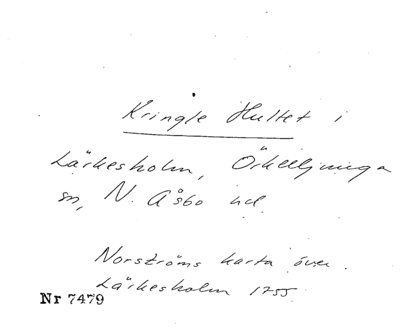 Kringle Hultet i
Lärkesholm, Örkelljunga
sn, N. Åsbo hd
Norströms karta över
Lärkesholm 1755
Nr 7479